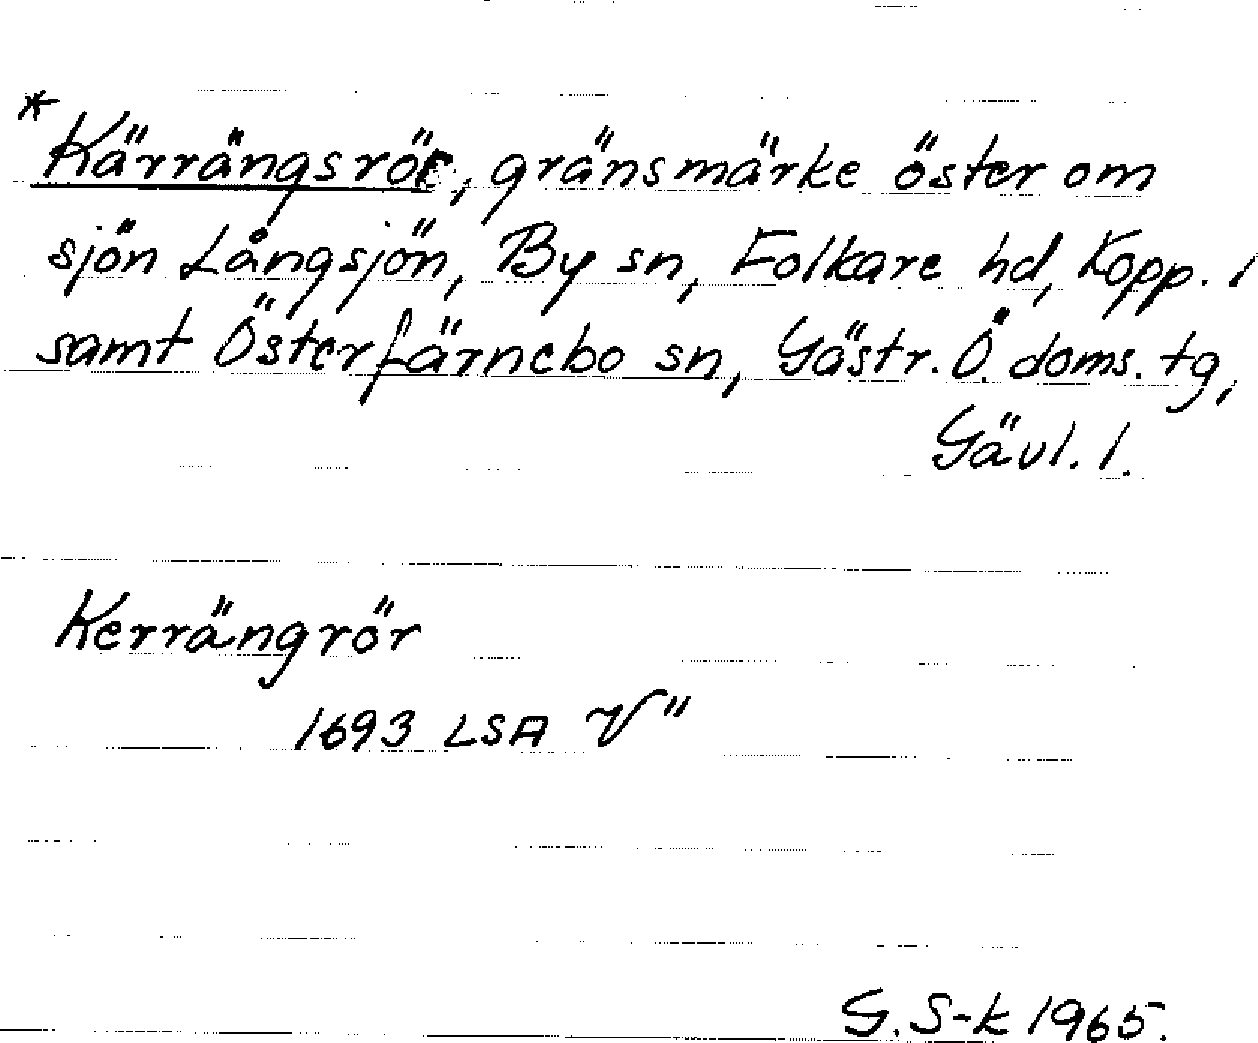 *Kärrängsrör, gränsmärke öster om
sjön Långsjön, By sn, Folkare hd, Kopp. l
samt Österfärnebo sn, Gästr. Ö. doms. tg,
Gävl. l.
Kerrängrör
1693 LSA V"
G. S-k 1965.